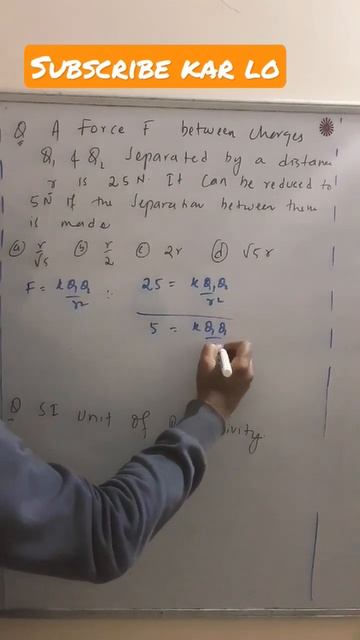 SUBSCRIBE KAR LO
Q A Force F between charges
Q₁ & Q₂ separated by a distance
r is 25N. It can be reduced to
5N if the separation between them
is made
(a) r/√5 (b) r/2 (c) 2r (d) √5 r
F = kQ₁Q₂/r² : 25 = kQ₁Q₂/r²
5 = kQ₁Q₂
Q SI Unit of